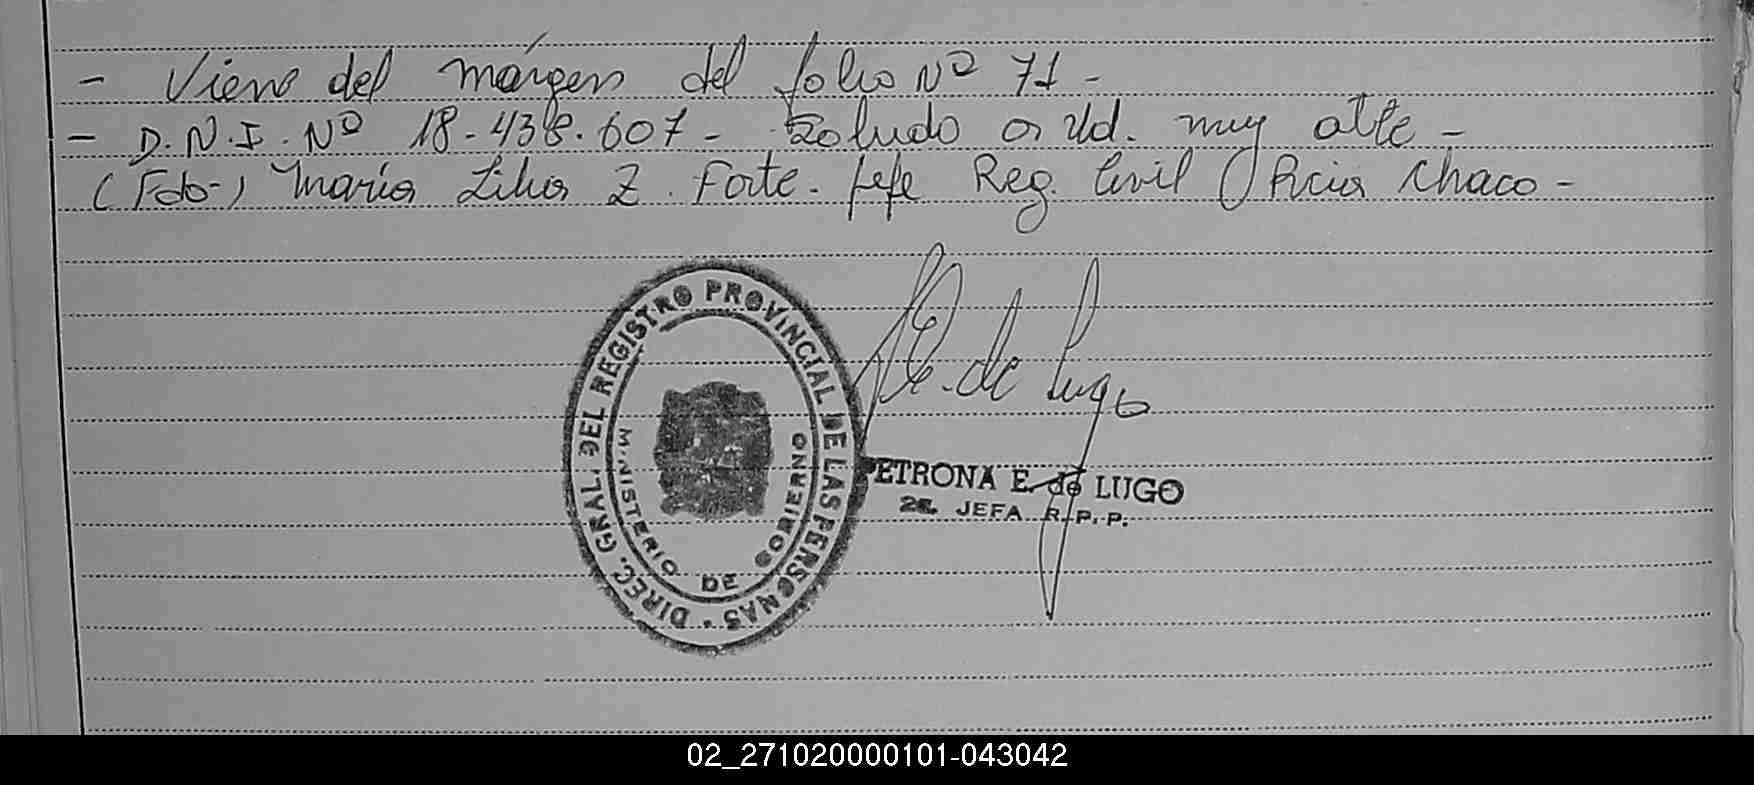 - Viene del márgen del folio Nº 71 -
- D.N.I. Nº 18-438.607 - Saludo a Ud. muy atte -
(Fdo-) María Lilia Z. Forte. Jefe Reg. Civil Pcia Chaco -
DIREC. GRAL. DEL REGISTRO PROVINCIAL DE LAS PERSONAS
MINISTERIO DE GOBIERNO
E. de Lugo
PETRONA E. de LUGO
2a. JEFA R.P.P.
02_271020000101-043042